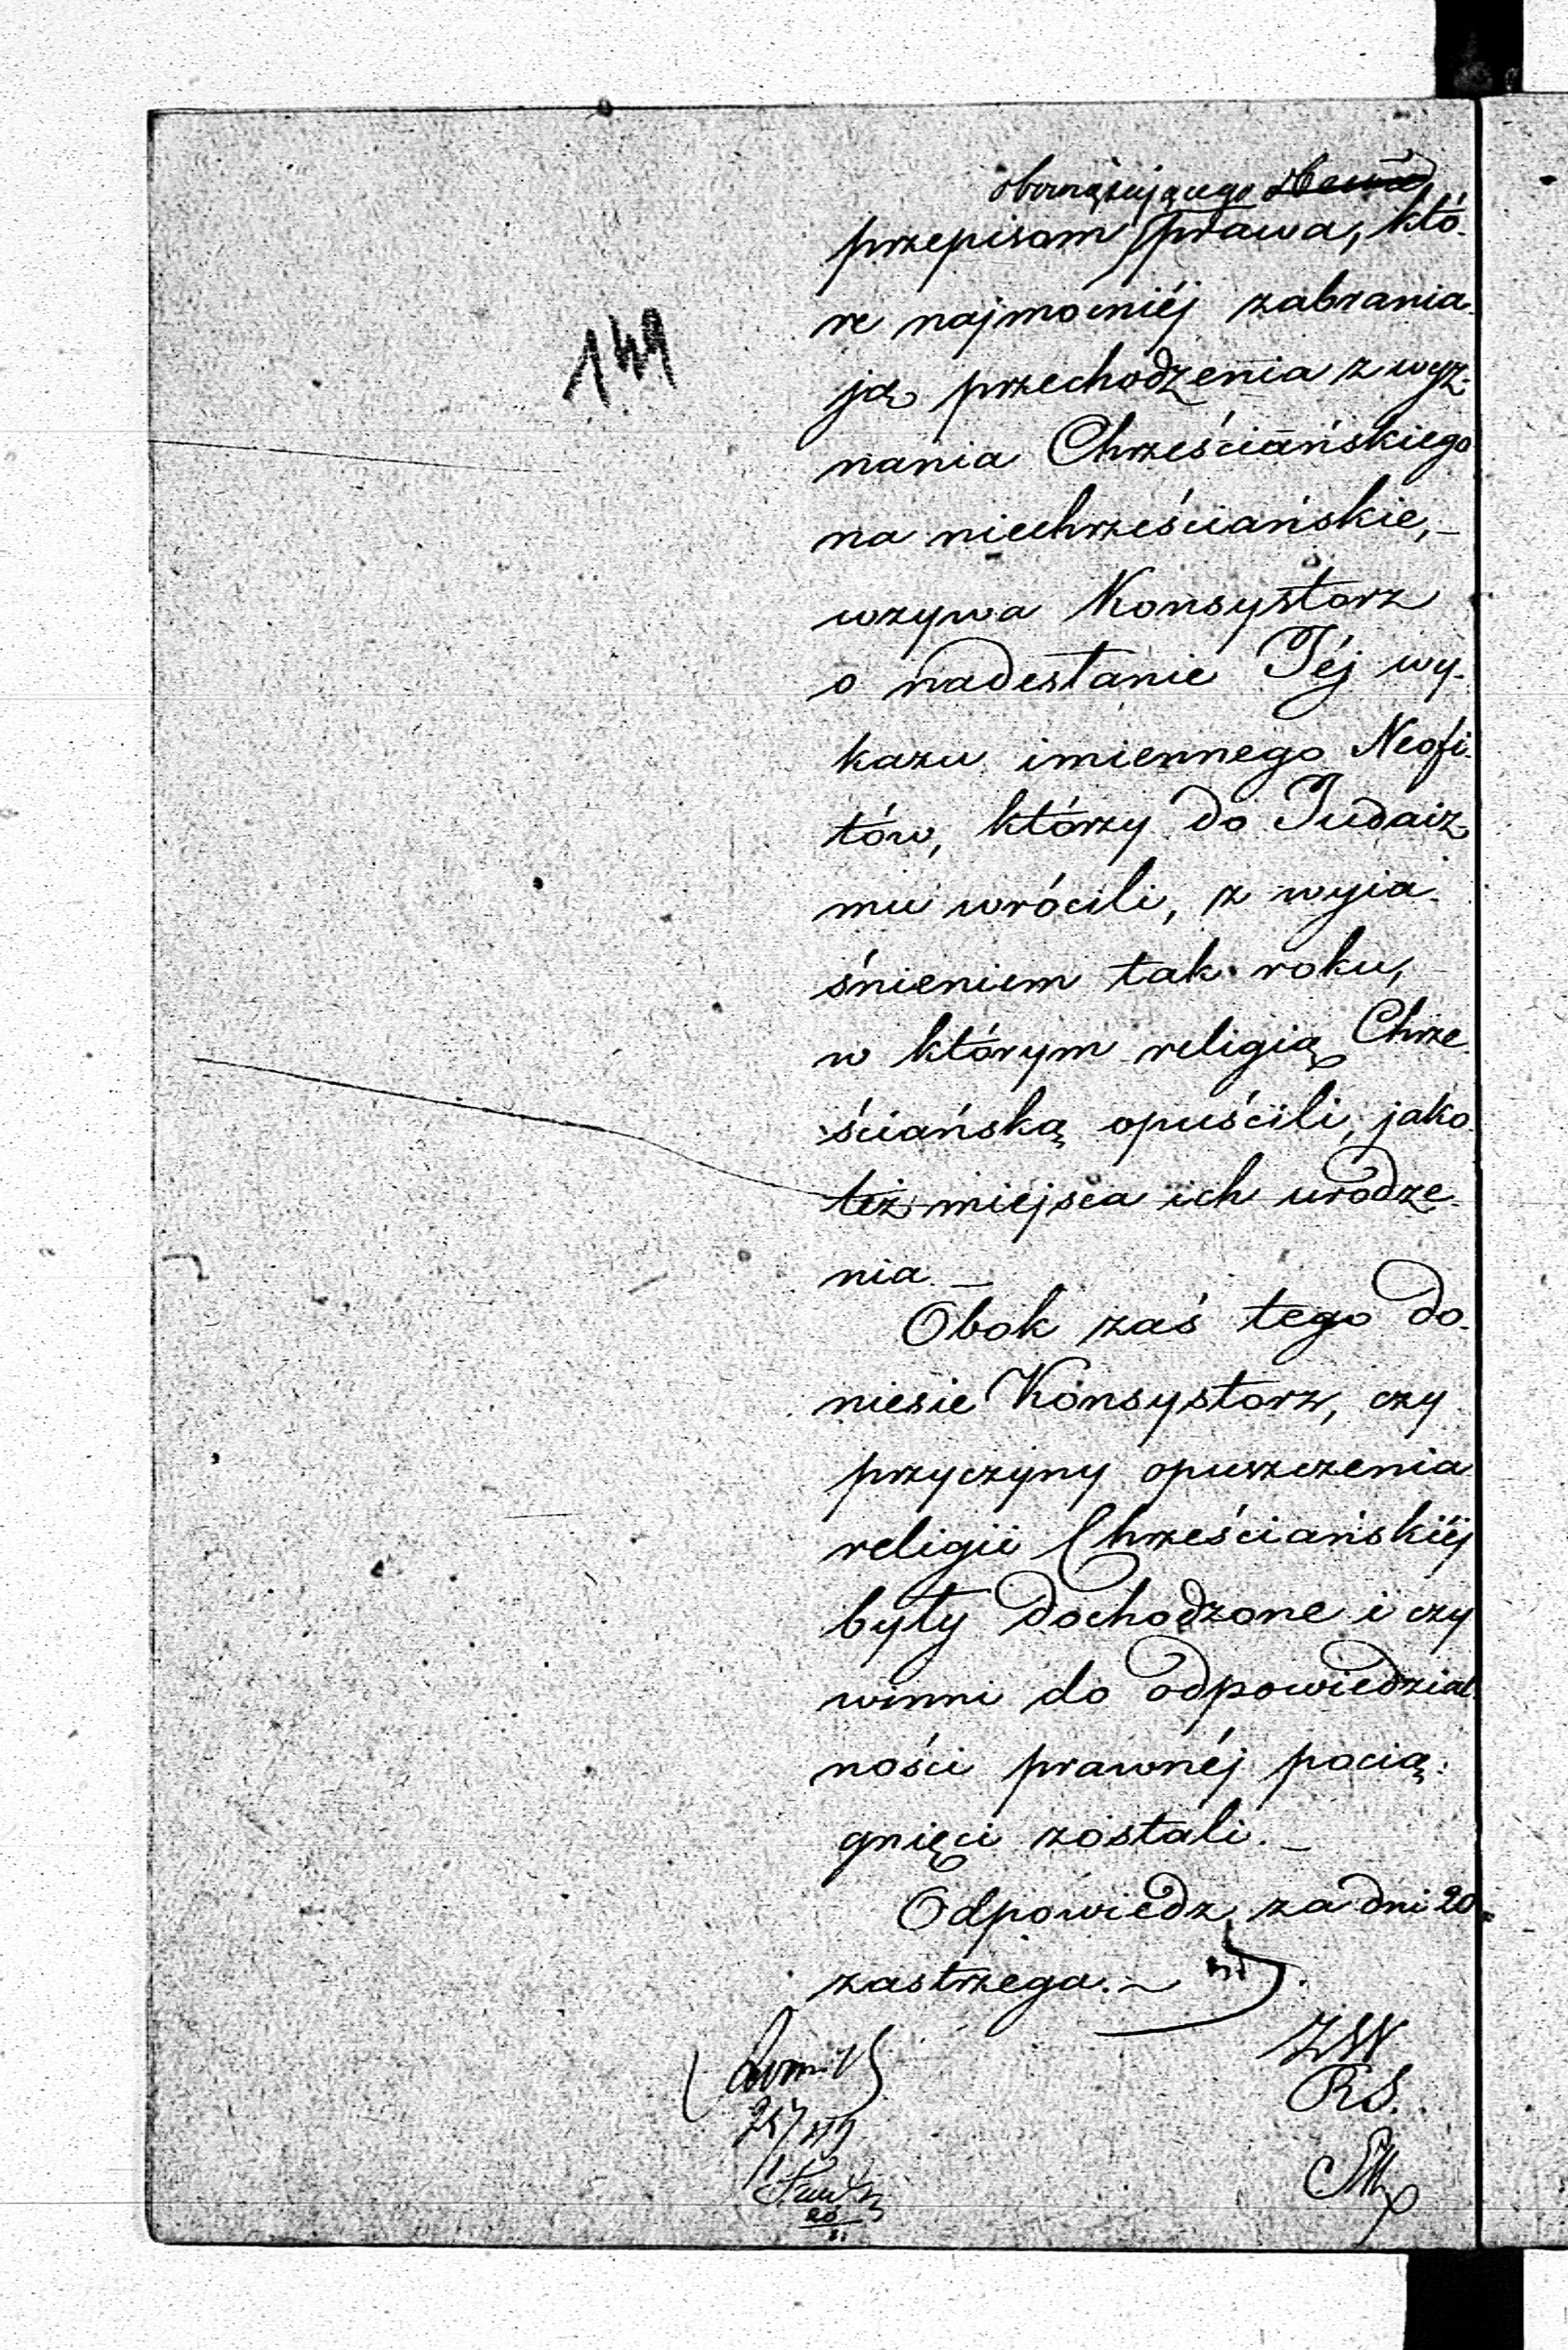 obowiązującego
przepisom prawa, któ-
149
re najmocniéj zabrania-
ją przechodzenia z wyz-
nania Chrześciańskiego
na niechrześciańskie, -
wzywa Konsystorz
o nadesłanie Jéj wy-
kazu imiennego Neofi-
tów, którzy do Judaiz
mu wrócili, z wyia-
śnieniem tak roku,
w którym religią Chrze-
ściańską opuścili, jako
też miejsca ich urodze-
nia. -
Obok zaś tego do-
niesie Konsystorz, czy
przyczyny opuszczenia
religii Chrześciańskiéj
były dochodzone i czy
winni do odpowiedzial-
ności prawnéj pocią-
gnięci zostali. -
Odpowiedz za dni 20
zastrzega. -
RS.